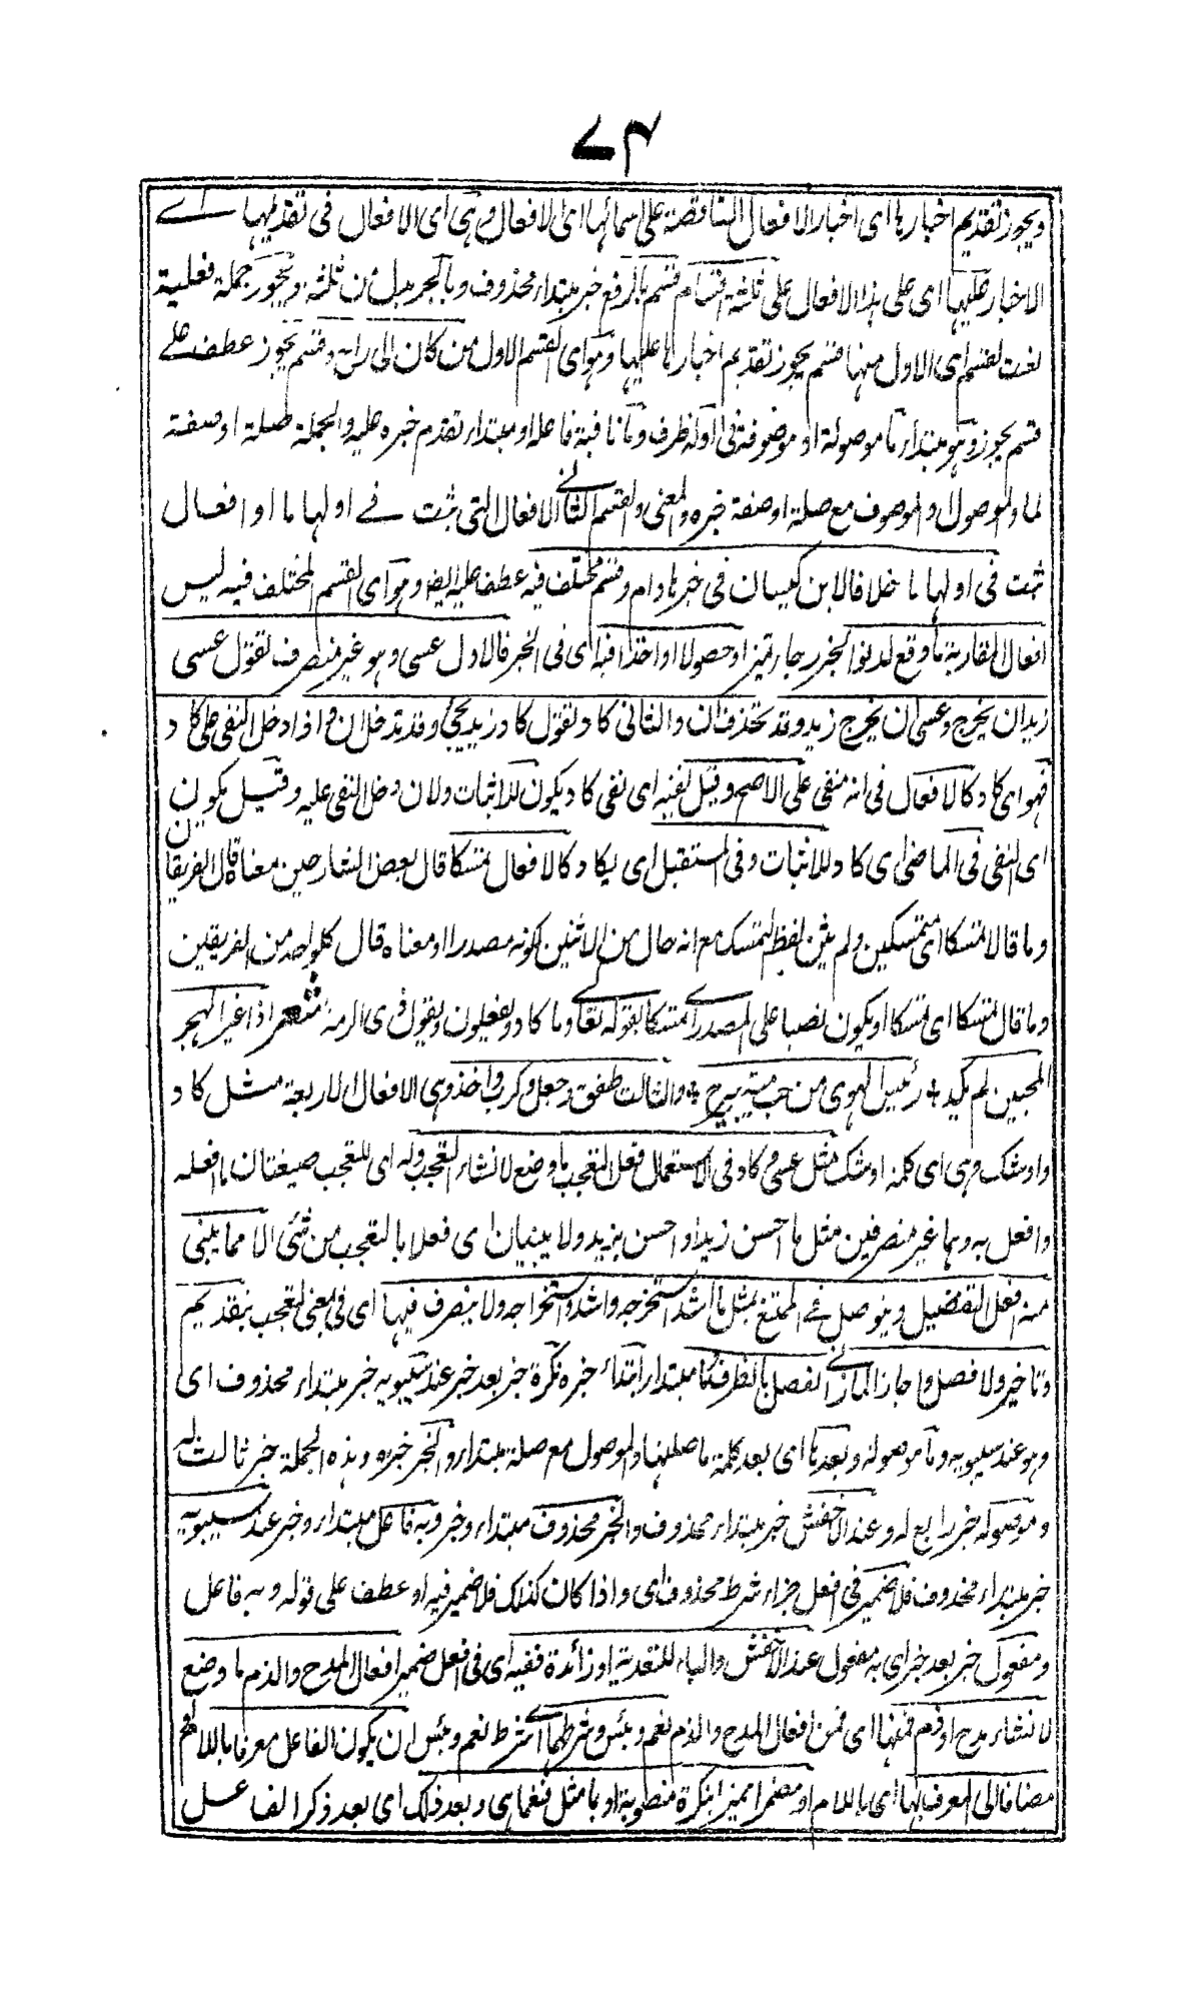 ٧٤
ويجوز تقديم اخبارها اى اخبار الافعال الناقصة على اسمائها اى الافعال وهى اى الافعال فى تقديمها اے
الاخبار عليها اى على هذا الافعال على ثلثة اقسام قسم بالرفع خبر مبتداء محذوف وبالجر بدل من ثلثة ويجوز جملة فعلية
نعت لقسم اى الاول منها قسم يجوز تقديم اخبارها عليها وهو اى القسم الاول من كان الى راح وقسم يجوز عطف على
قسم يجوز وهو مبتداء ما موصولة او موصوفة فى اوله ظرف وما نافية فاعله او مبتداء تقدم خبره عليه والجملة صلة او صفة
لما والموصول والموصوف مع صلة او صفة خبره والمعنى والقسم الثانى الافعال التى ثبت فے اولها ما او افعال
ثبت فى اولها ما خلافا لابن كيسان فى خبر مادام وقسم مختلف فيه عطف عليه ايضا وهو اى القسم المختلف فيه ليس
افعال المقاربة ما وقع لدنو الخبر رجاء تميز او حصولا او اخذا فيه اى فى الخبر فالاول عسى وهو غير متصرف تقول عسى
زيد ان يخرج وعسى ان يخرج زيد وقد تحذف ان والثانى كاد تقول كاد زيد يجئ وقد تدخل ان واذا دخل النفى على كاد
فهو اى كاد كالافعال فى انه منفى على الاصح وقيل نفيه اى نفى كاد يكون للاثبات ولان دخل النفى عليه وقيل يكون
اى النفى فى الماضى اى كاد للاثبات وفى المستقبل اى يكاد كالافعال تمسكا قال بعض الشارحين معناه قال الفريقان
وما قالا تمسكا اى متمسكين ولم يثن لفظ التمسك مع انه حال من الاثنين لكونه مصدرا او معناه قال كلواحد من الفريقين
وما قال تمسكا اى تمسكا او يكون نصبا على المصدر اے تمسكا بقوله تعالے وما كادوا يفعلون وبقول ذى الرمة شعر اذا غير الهجر
المحبين لم يكد + رسيس الهوى من حب مية يبرح + والثالث طفق وجعل وكرب واخذ وهى الافعال الاربعة مثل كاد
واوشك وهى اى كلمة اوشك مثل عسى وكاد فى الاستعمال فعل التعجب ما وضع لانشاء التعجب وله اى للتعجب صيغتان ما افعله
وافعل به وهما غير متصرفين مثل ما احسن زيدا واحسن بزيد ولا يبنيان اى فعلا التعجب من شئ الا مما يبنى
منه افعل التفضيل ويتوصل فے الممتنع بمثل ما اشد استخراجه واشد باستخراجه ولا يتصرف فيها اى فى معنى التعجب بتقديم
وتاخير ولا فصل واجاز المازنے الفصل بالظرف وما مبتداء ابتداء خبره نكرة خبر بعد خبر عند سيبويه خبر مبتداء محذوف اى
وهو عند سيبويه وما موصولة وبعدها اى بعد كلمة ما صلتها والموصول مع صلة مبتداء والخبر خبره وهذه الجملة خبر ثالث له
وموصولة خبر رابع له وعند الاخفش خبر مبتداء محذوف والخبر محذوف مبتداء وخبر وبه فاعل مبتداء وخبر عند سيبويه
خبر مبتداء محذوف فلا ضمير فى افعل جزاء شرط محذوف اى واذا كان كذلك فلا ضمير فيه او عطف على قوله وبه فاعل
ومفعول خبر بعد خبر اى به مفعول عند الاخفش والباء للتعدية او زائدة ففيه اى فى افعل ضمير افعال المدح والذم ما وضع
لانشاء مدح او ذم فمنها اى فمن افعال المدح والذم نعم وبئس وشرطهما اے شرط نعم وبئس ان يكون الفاعل معرفا باللام
مضافا الى المعرف بها اى باللام او مضمرا مميزا بنكرة منصوبة او بما مثل فنعما هى وبعد ذلك اى بعد ذكر الفاعل